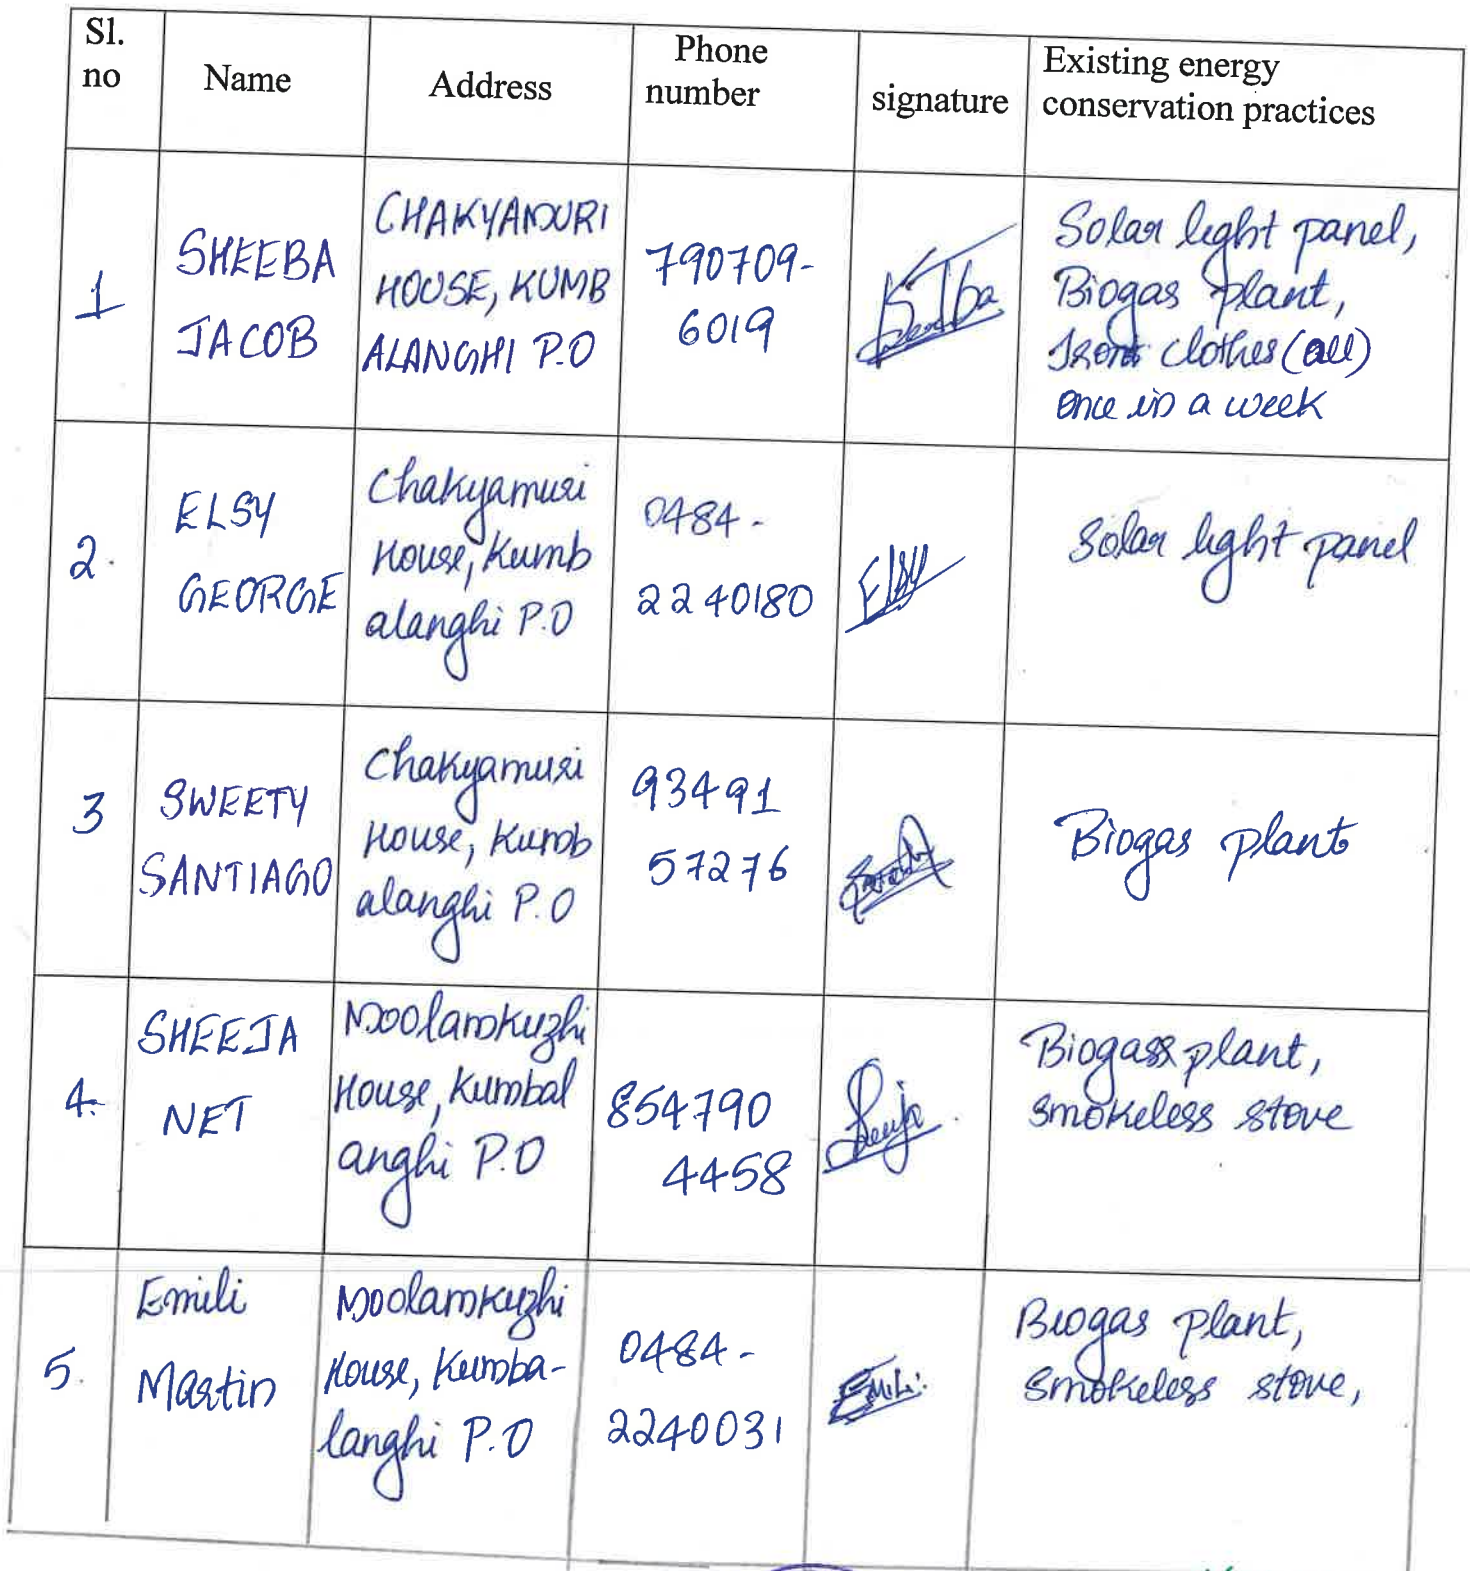 Sl. no
Name
Address
Phone number
signature
Existing energy conservation practices
1
SHEEBA
JACOB
CHAKYAMURI
HOUSE, KUMB
ALANGHI P.O
790709-
6019
Solar light panel,
Biogas plant,
Iron clothes (all)
once in a week
2.
ELSY
GEORGE
Chakyamuri
House, Kumb
alanghi P.O
0484-
2240180
Elsy
Solar light panel
3
SWEETY
SANTIAGO
Chakyamuri
House, Kumb
alanghi P.O
93491
57276
Biogas plant
4.
SHEEJA
NET
Moolamkuzhi
House, Kumbal
anghi P.O
854790
4458
Sheeja
Biogas plant,
smokeless stove
5.
Emili
Martin
Moolamkuzhi
House, Kumba-
langhi P.O
0484-
2240031
Emili
Biogas plant,
Smokeless stove,